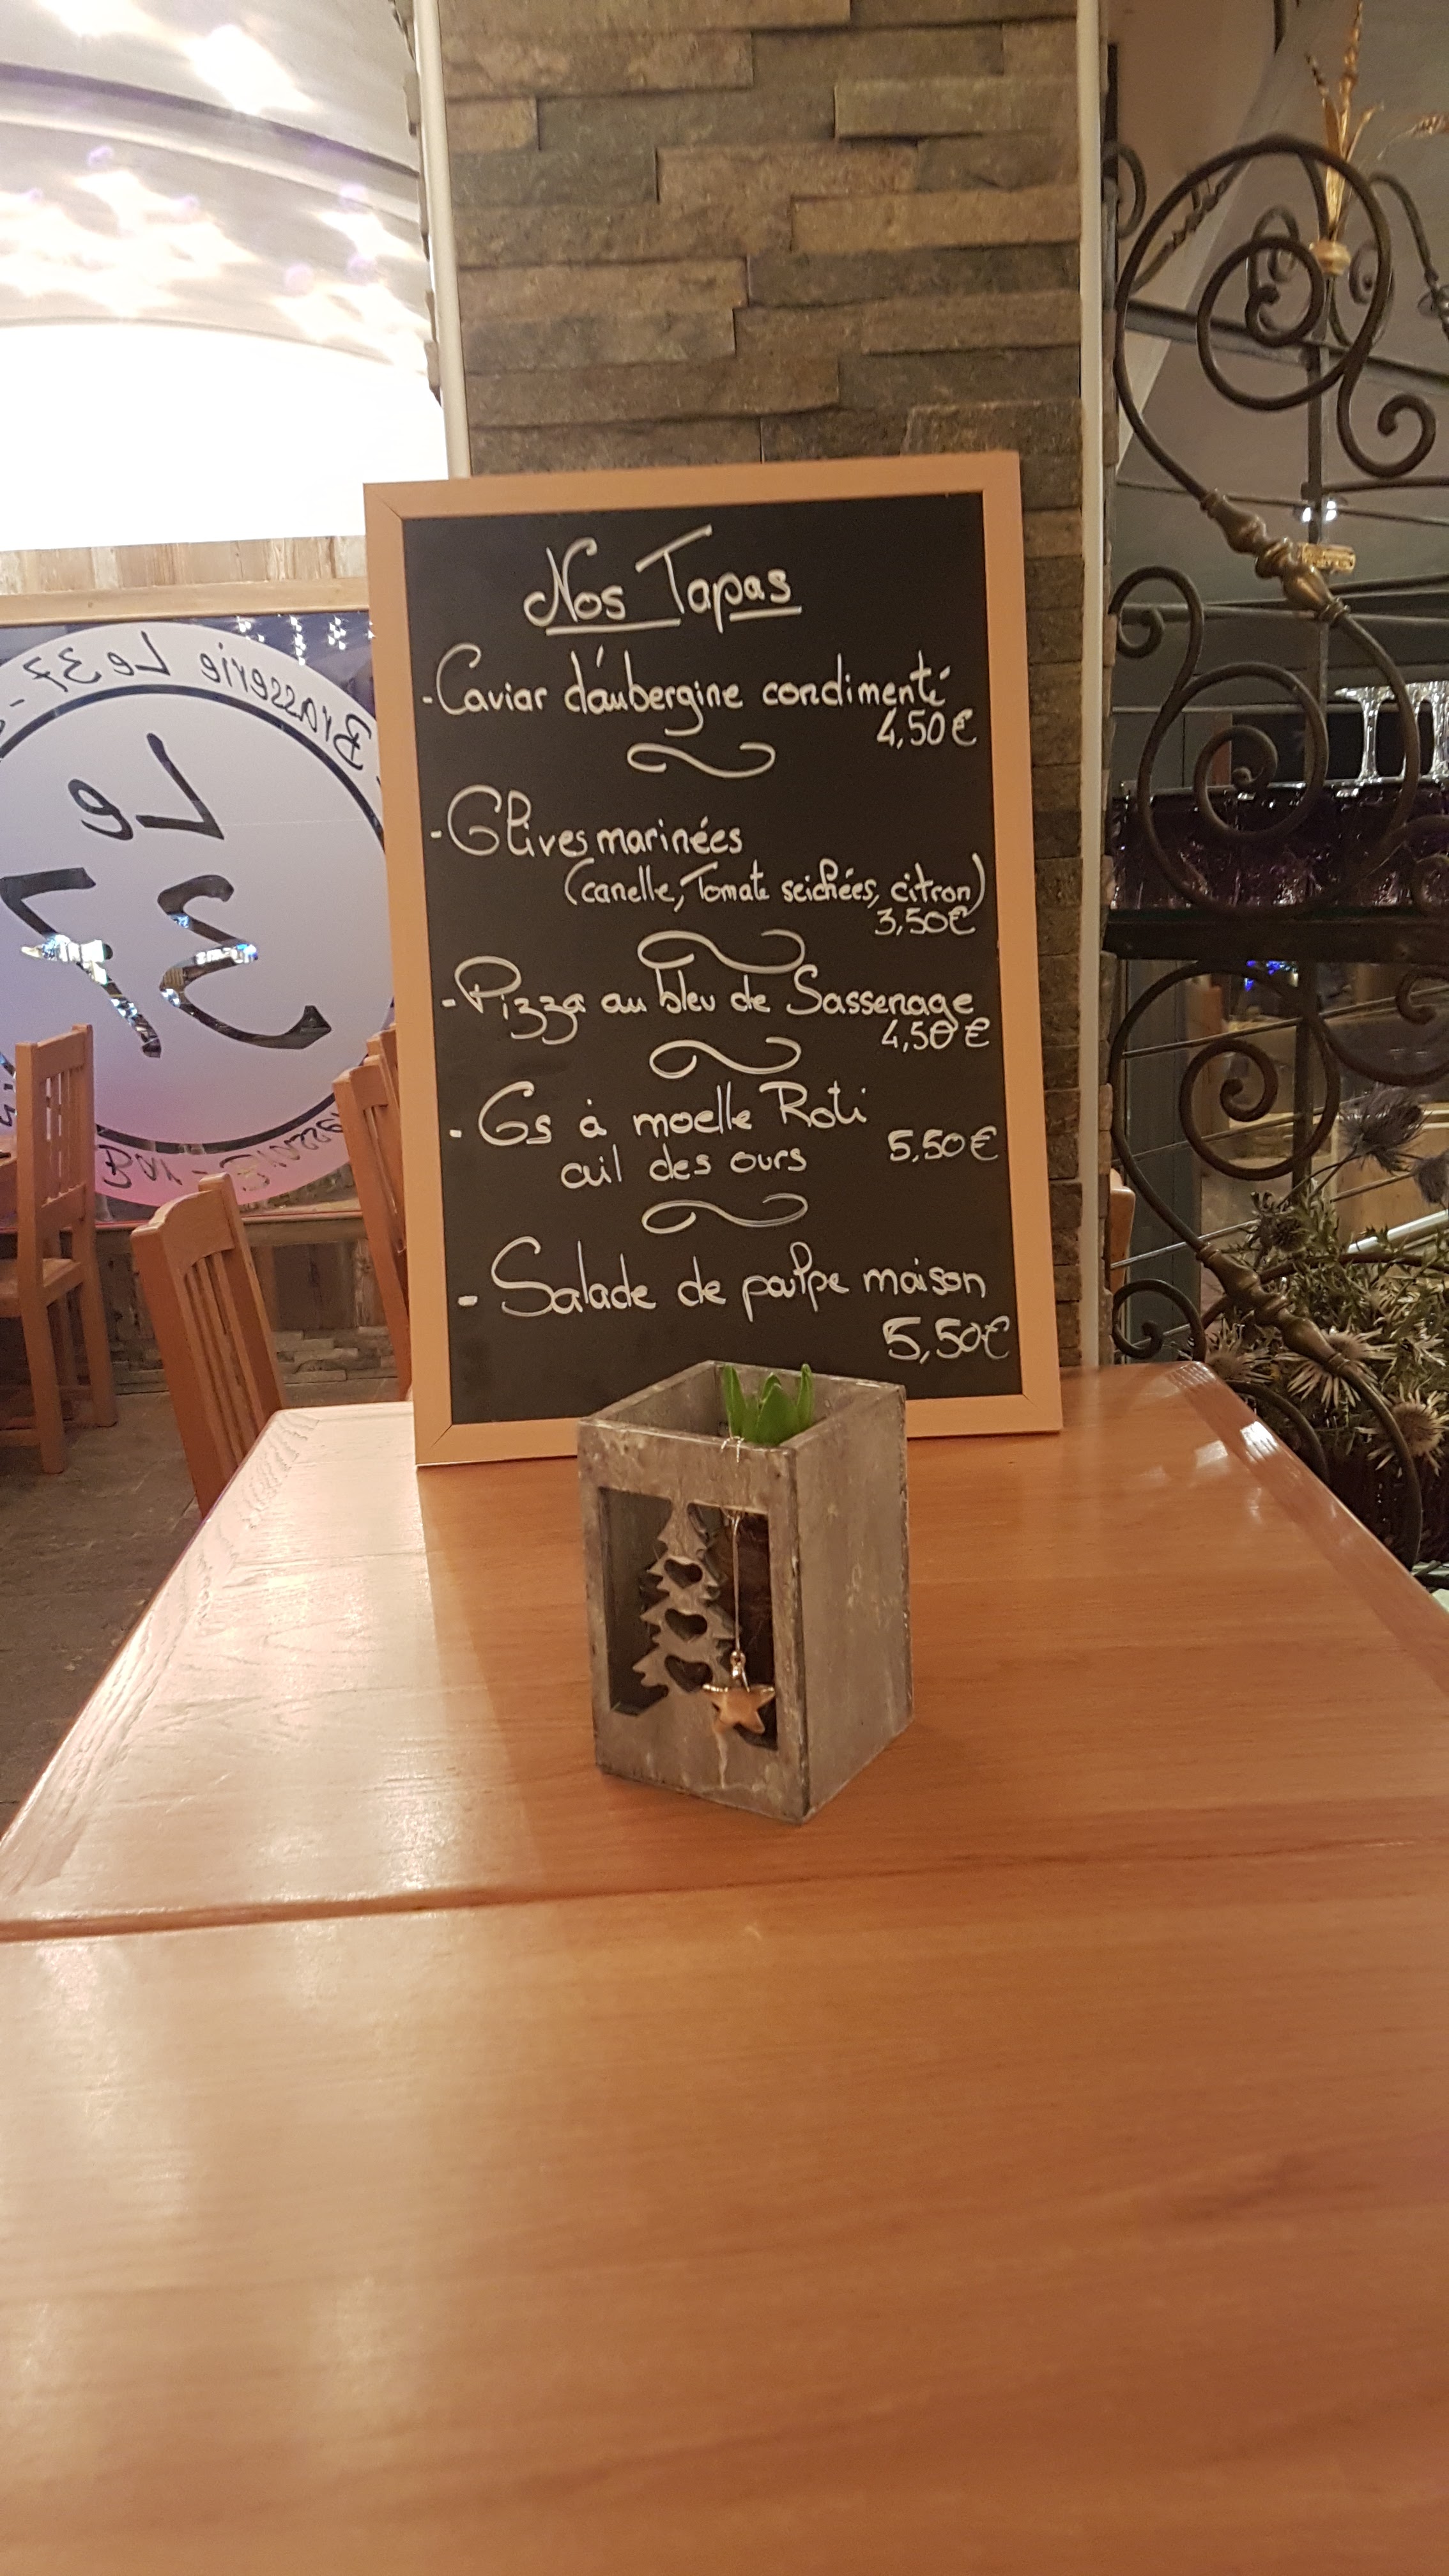 Nos Tapas
- Caviar d'aubergine condimenté
4,50€
- Olives marinées
(canelle, Tomate seichées, citron)
3,50€
- Pizza au bleu de Sassenage
4,50€
- Os à moelle Roti
ail des ours 5,50€
- Salade de poulpe maison
5,50€
Brasserie Le 37 -
Le
37